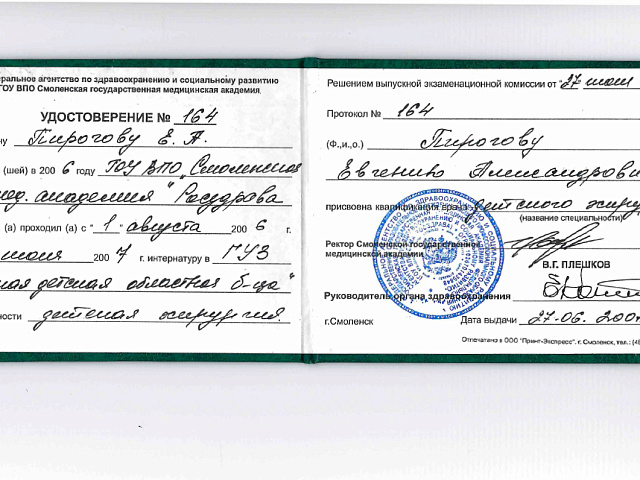 еральное агентство по здравоохранению и социальному развитию
ГОУ ВПО Смоленская государственная медицинская академия.
УДОСТОВЕРЕНИЕ № 164
ну Пирогову Е. А.
(шей) в 200 6 году ГОУ ВПО „Смоленская
мед. академия" Росздрава
(а) проходил (а) с " 1 " августа 200 6 г.
июня 200 7 г. интернатуру в ГУЗ
ная детская областная б-ца"
ности детская хирургия.
Решением выпускной экзаменационной комиссии от "27 июня
Протокол № 164
(Ф.,и.,о.) Пирогову
Евгению Александрови
присвоена квалификация врача детского хиру
(название специальности)
Ректор Смоленской государственной
медицинской академии
В.Г. ПЛЕШКОВ
Руководитель органа здравоохранения
г.Смоленск Дата выдачи 27.06.200
Отпечатано в ООО "Принт-Экспресс", г. Смоленск, тел.: (48